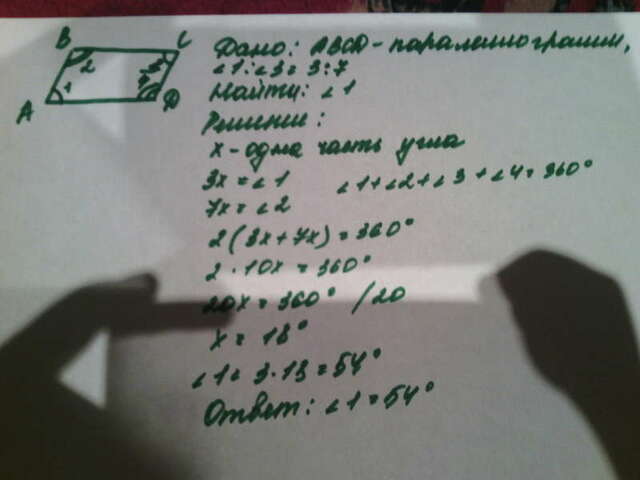 B C
2
1
A D
Дано: ABCD - параллелограмм,
∠1:∠3 = 3:7
Найти: ∠1
Решение:
x - одна часть угла
3x = ∠1 ∠1+∠2+∠3+∠4=360°
7x = ∠2
2(3x+7x)=360°
2·10x=360°
20x=360° /20
x = 18°
∠1= 3·18=54°
Ответ: ∠1=54°